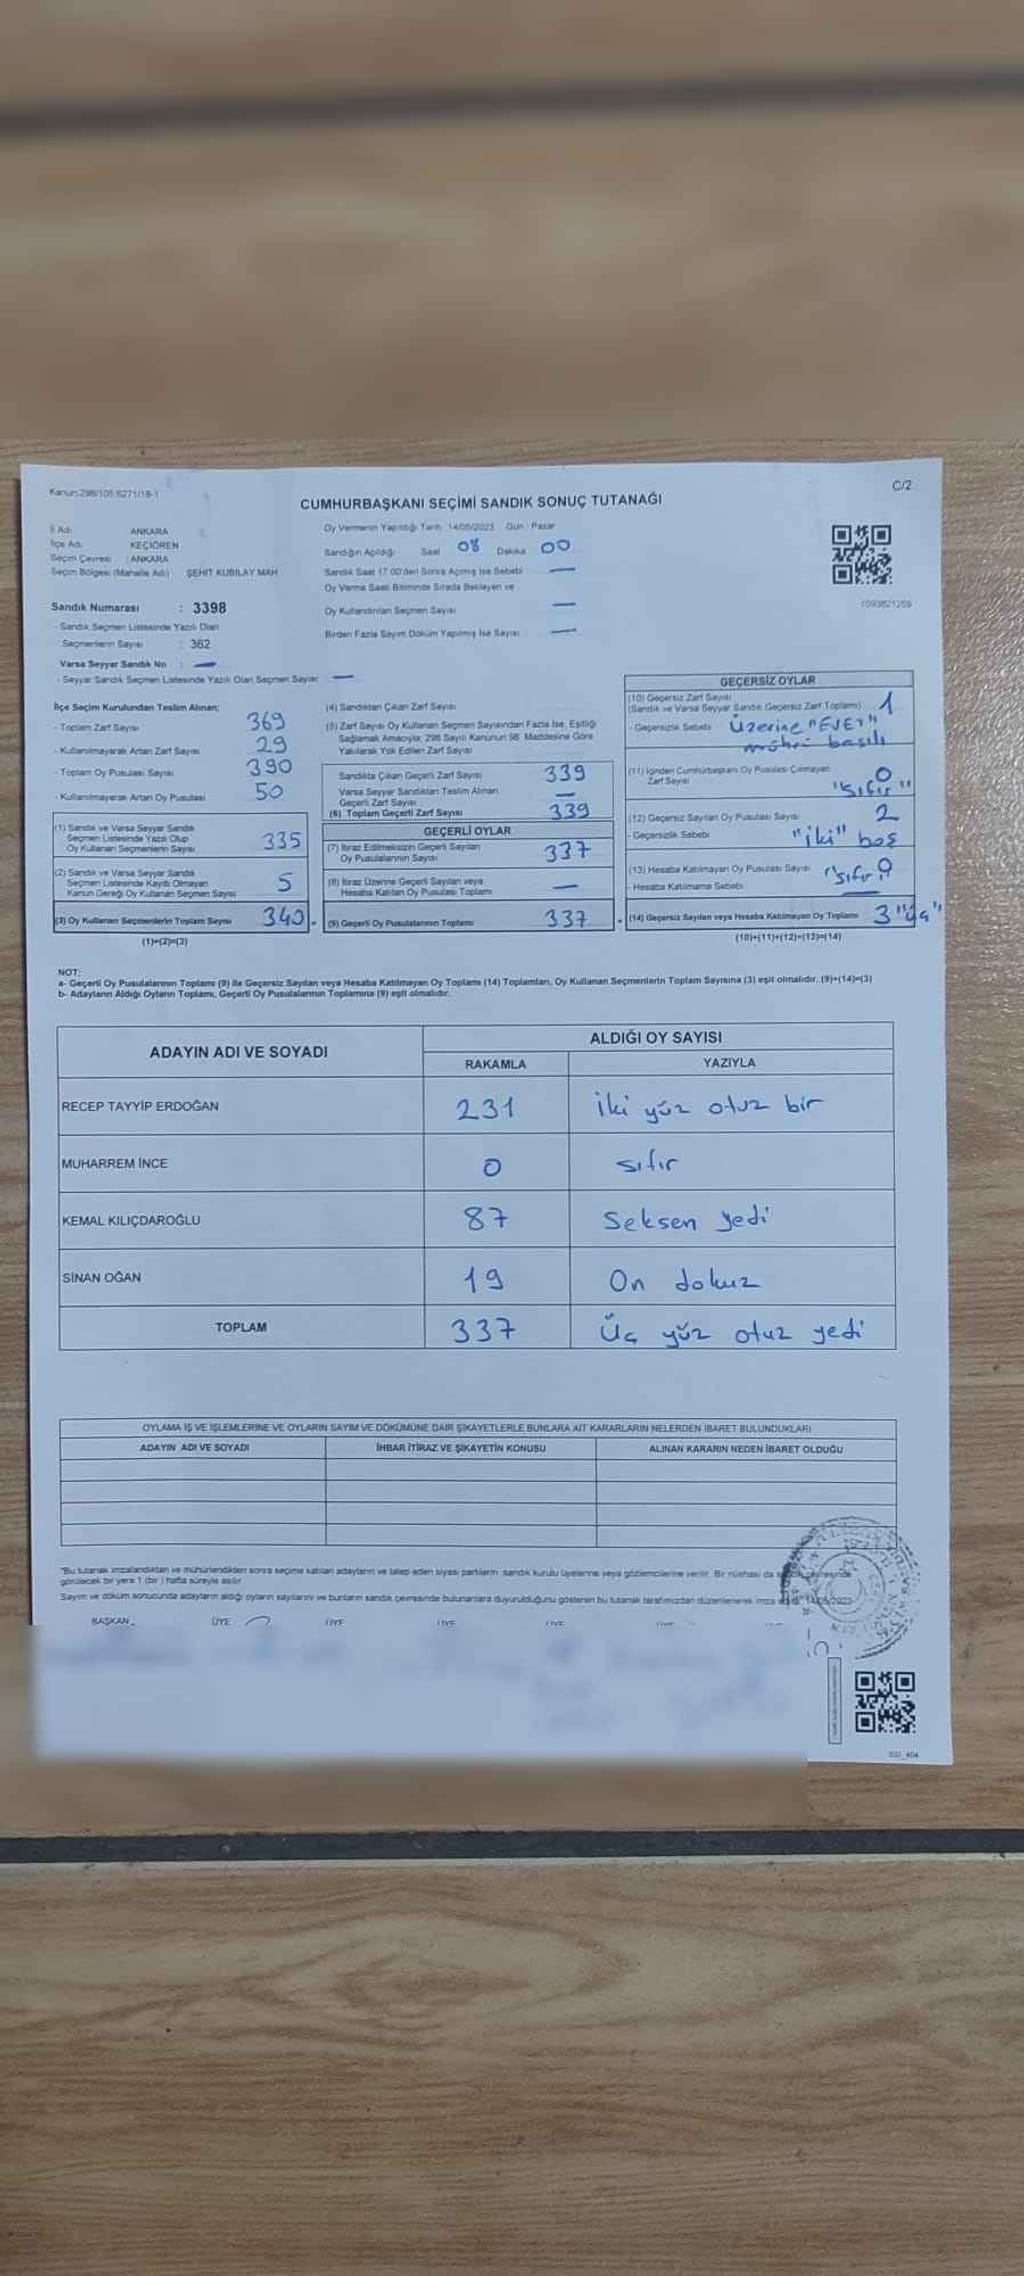 Kanun:298/105 6271/18-1
C/2
CUMHURBAŞKANI SEÇİMİ SANDIK SONUÇ TUTANAĞI
İl Adı ANKARA
İlçe Adı KEÇİÖREN
Seçim Çevresi : ANKARA
Seçim Bölgesi (Mahalle Adı) ŞEHİT KUBİLAY MAH
Sandık Numarası : 3398
- Sandık Seçmen Listesinde Yazılı Olan
Seçmenlerin Sayısı : 362
Varsa Seyyar Sandık No : —
- Seyyar Sandık Seçmen Listesinde Yazılı Olan Seçmen Sayısı: —
Oy Vermenin Yapıldığı Tarih 14/05/2023 Gün : Pazar
Sandığın Açıldığı Saat 08 Dakika 00
Sandık Saat 17:00'den Sonra Açılmış İse Sebebi —
Oy Verme Saati Bitiminde Sırada Bekleyen ve
Oy Kullandırılan Seçmen Sayısı —
Birden Fazla Sayım Döküm Yapılmış İse Sayısı —
1093821259
İlçe Seçim Kurulundan Teslim Alınan;
- Toplam Zarf Sayısı 369
- Kullanılmayarak Artan Zarf Sayısı 29
- Toplam Oy Pusulası Sayısı 390
- Kullanılmayarak Artan Oy Pusulası 50
(1) Sandık ve Varsa Seyyar Sandık
Seçmen Listesinde Yazılı Olup
Oy Kullanan Seçmenlerin Sayısı 335
(2) Sandık ve Varsa Seyyar Sandık
Seçmen Listesinde Kayıtlı Olmayan
Kanun Gereği Oy Kullanan Seçmen Sayısı 5
(3) Oy Kullanan Seçmenlerin Toplam Sayısı 340 =
(1)+(2)=(3)
(4) Sandıktan Çıkan Zarf Sayısı
(5) Zarf Sayısı Oy Kullanan Seçmen Sayısından Fazla İse, Eşitliği
Sağlamak Amacıyla; 298 Sayılı Kanunun 98. Maddesine Göre
Yakılarak Yok Edilen Zarf Sayısı
Sandıkta Çıkan Geçerli Zarf Sayısı 339
Varsa Seyyar Sandıktan Teslim Alınan
Geçerli Zarf Sayısı —
(6) Toplam Geçerli Zarf Sayısı 339
GEÇERLİ OYLAR
(7) İtiraz Edilmeksizin Geçerli Sayılan
Oy Pusulalarının Sayısı 337
(8) İtiraz Üzerine Geçerli Sayılan veya
Hesaba Katılan Oy Pusulası Toplamı —
(9) Geçerli Oy Pusulalarının Toplamı 337 +
GEÇERSİZ OYLAR
(10) Geçersiz Zarf Sayısı
(Sandık ve Varsa Seyyar Sandık Geçersiz Zarf Toplamı) 1
- Geçersizlik Sebebi Üzerine "EVET"
mührü basılı
(11) İçinden Cumhurbaşkanı Oy Pusulası Çıkmayan
Zarf Sayısı 0 "sıfır"
(12) Geçersiz Sayılan Oy Pusulası Sayısı 2
- Geçersizlik Sebebi "iki" boş
(13) Hesaba Katılmayan Oy Pusulası Sayısı "sıfır" 0
- Hesaba Katılmama Sebebi —
(14) Geçersiz Sayılan veya Hesaba Katılmayan Oy Toplamı 3 "üç"
(10)+(11)+(12)+(13)=(14)
NOT:
a- Geçerli Oy Pusulalarının Toplamı (9) ile Geçersiz Sayılan veya Hesaba Katılmayan Oy Toplamı (14) Toplamları, Oy Kullanan Seçmenlerin Toplam Sayısına (3) eşit olmalıdır. (9)+(14)=(3)
b- Adayların Aldığı Oyların Toplamı, Geçerli Oy Pusulalarının Toplamına (9) eşit olmalıdır.
ADAYIN ADI VE SOYADI
ALDIĞI OY SAYISI
RAKAMLA YAZIYLA
RECEP TAYYİP ERDOĞAN 231 İki yüz otuz bir
MUHARREM İNCE 0 sıfır
KEMAL KILIÇDAROĞLU 87 Seksen yedi
SİNAN OĞAN 19 On dokuz
TOPLAM 337 Üç yüz otuz yedi
OYLAMA İŞ VE İŞLEMLERİNE VE OYLARIN SAYIM VE DÖKÜMÜNE DAİR ŞİKAYETLERLE BUNLARA AİT KARARLARIN NELERDEN İBARET BULUNDUKLARI
ADAYIN ADI VE SOYADI İHBAR İTİRAZ VE ŞİKAYETİN KONUSU ALINAN KARARIN NEDEN İBARET OLDUĞU
"Bu tutanak imzalandıktan ve mühürlendikten sonra seçime katılan adayların ve talep eden siyasi partilerin sandık kurulu üyelerine veya gözlemcilerine verilir. Bir nüshası da sandık çevresinde
görülecek bir yere 1 (bir) hafta süreyle asılır.
Sayım ve döküm sonucunda adayların aldığı oyların sayılarını ve bunların sandık çevresinde bulunanlara duyurulduğunu gösteren bu tutanak tarafımızdan düzenlenerek imza edildi. 14/05/2023
BAŞKAN ÜYE ÜYE ÜYE ÜYE